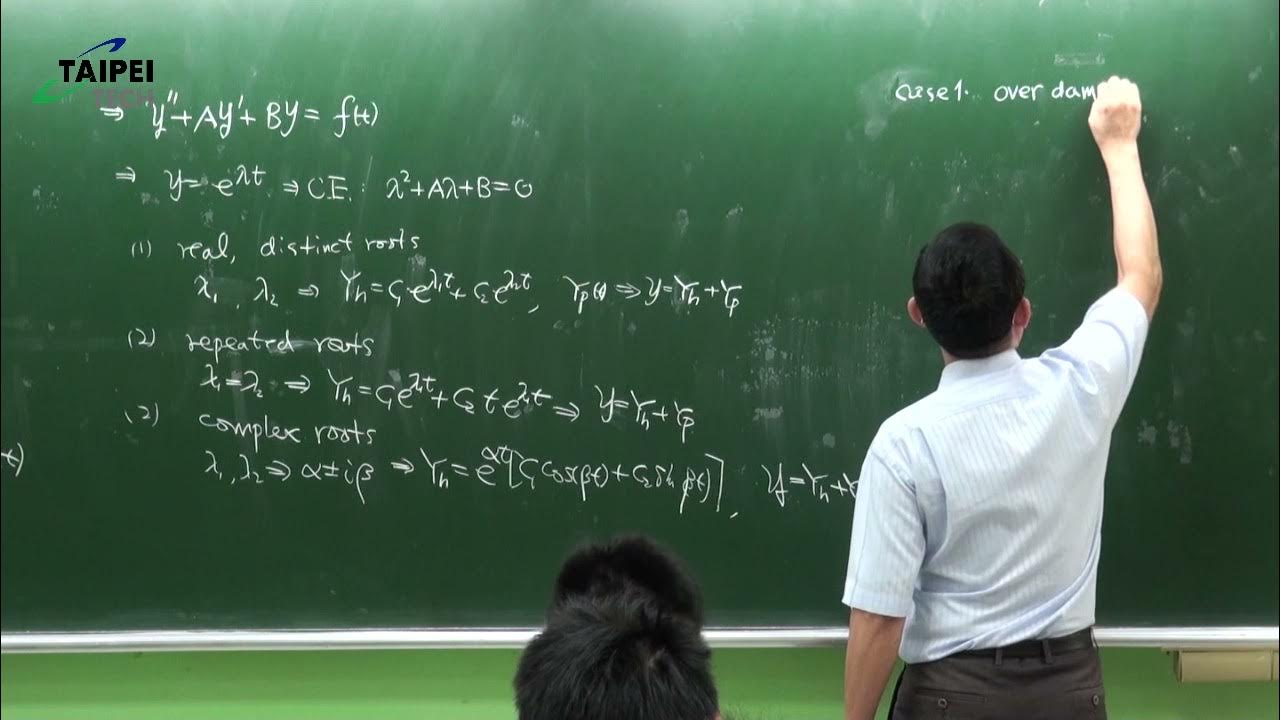 TAIPEI
TECH
⇒ y''+Ay'+By= f(t)
⇒ y= e^{λt} ⇒ C.E. : λ²+Aλ+B=0
(1) real, distinct roots
λ₁, λ₂ ⇒ Yₕ=C₁e^{λ₁t}+C₂e^{λ₂t}, Yₚ(t) ⇒ y=Yₕ+Yₚ
(2) repeated roots
λ₁=λ₂ ⇒ Yₕ=C₁e^{λ₁t}+C₂te^{λ₁t} ⇒ y=Yₕ+Yₚ
(2) complex roots
λ₁,λ₂ ⇒ α±iβ ⇒ Yₕ=e^{αt}[C₁cos(βt)+C₂sin(βt)], y=Yₕ+
t)
case1. over dam